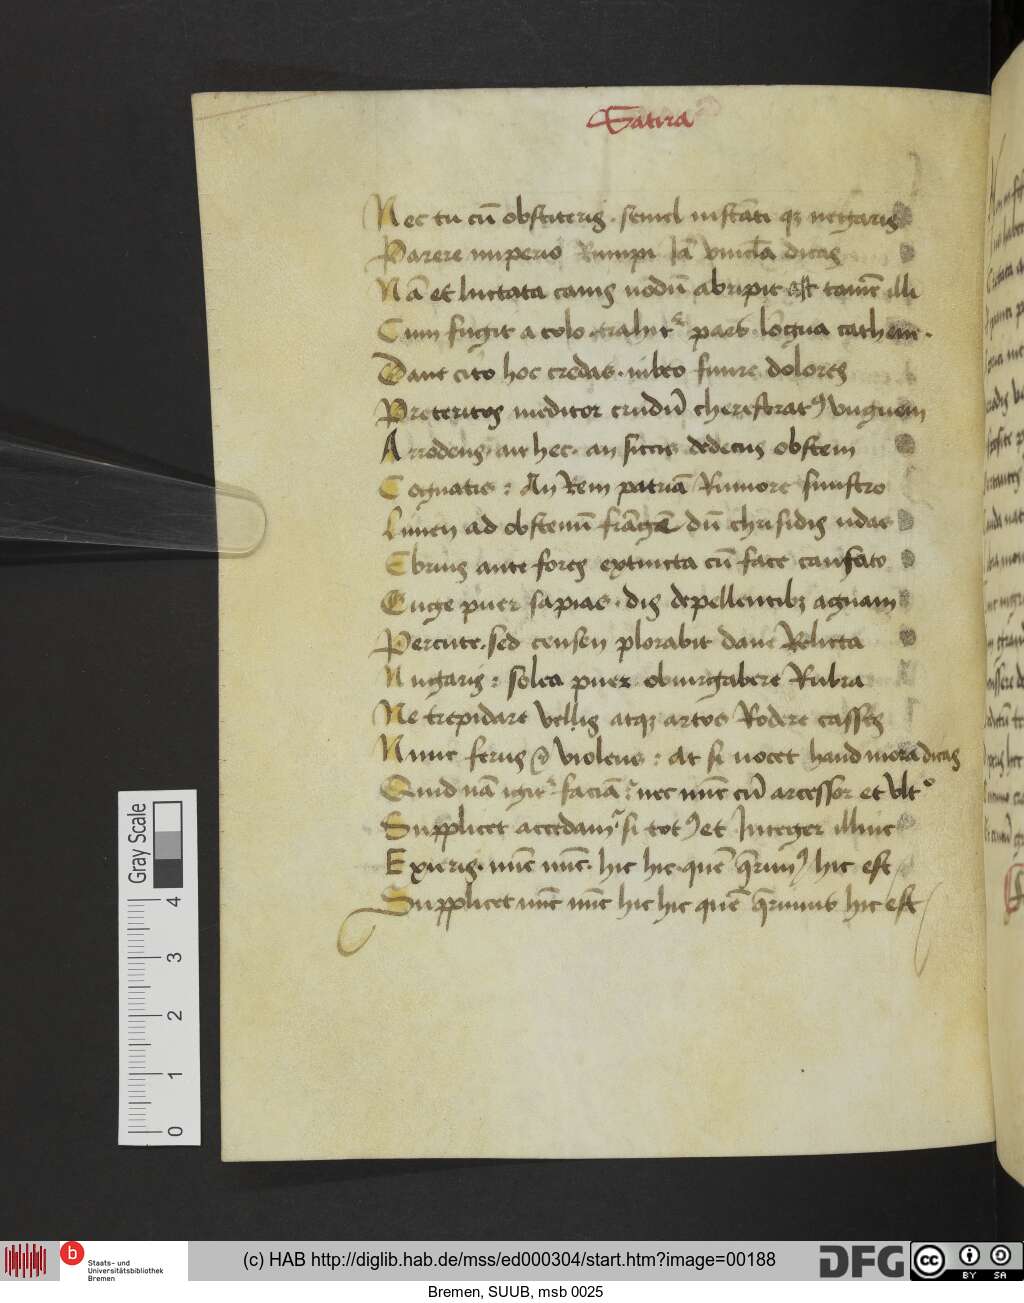 Satira
Nec tu cū obstiteris . semel instāti qz negaris
Parere imperio Rumpi Iā vincl̄a dicas
Nā et luctata canis nodū abripit ast tamē illi
Cum fugit a colo . trahitr pars lōgua cathene .
Dave cito hoc credas . iubeo finire dolores
Preteritos meditor crudū cherestratꝰ vnguem
Arrodens . air hec . an siccis dedecus obstem
Cognatis : An Rem patriā Rumore sinistro
Limen ad obscenū frāgē dū chrisidis udas
Ebrius ante fores extincta cū face canfato
Euge puer sapias . dis depellentibz agnam
Percute . sed censen plorabit dave Relicta
Nugaris : solea puer obiurgabere Rubra
Ne trepidare vellis atqz artos Rodere casses
Nunc ferus & violens : At si vocet haud mora dicas
Quid nā igitr faciā nec nūc cū arcessor et vltº
Supplicet accedam si totꝰ et Integer illinc
Exieris . nūc nūc . hic hic . quē q̄rimꝰ hic est
Supplicet nūc nūc hic hic quē q̄rimus hic est
Gray Scale
4
3
2
1
0
b
Staats- und
Universitätsbibliothek
Bremen
(c) HAB http://diglib.hab.de/mss/ed000304/start.htm?image=00188
DFG
cc
BY SA
Bremen, SUUB, msb 0025